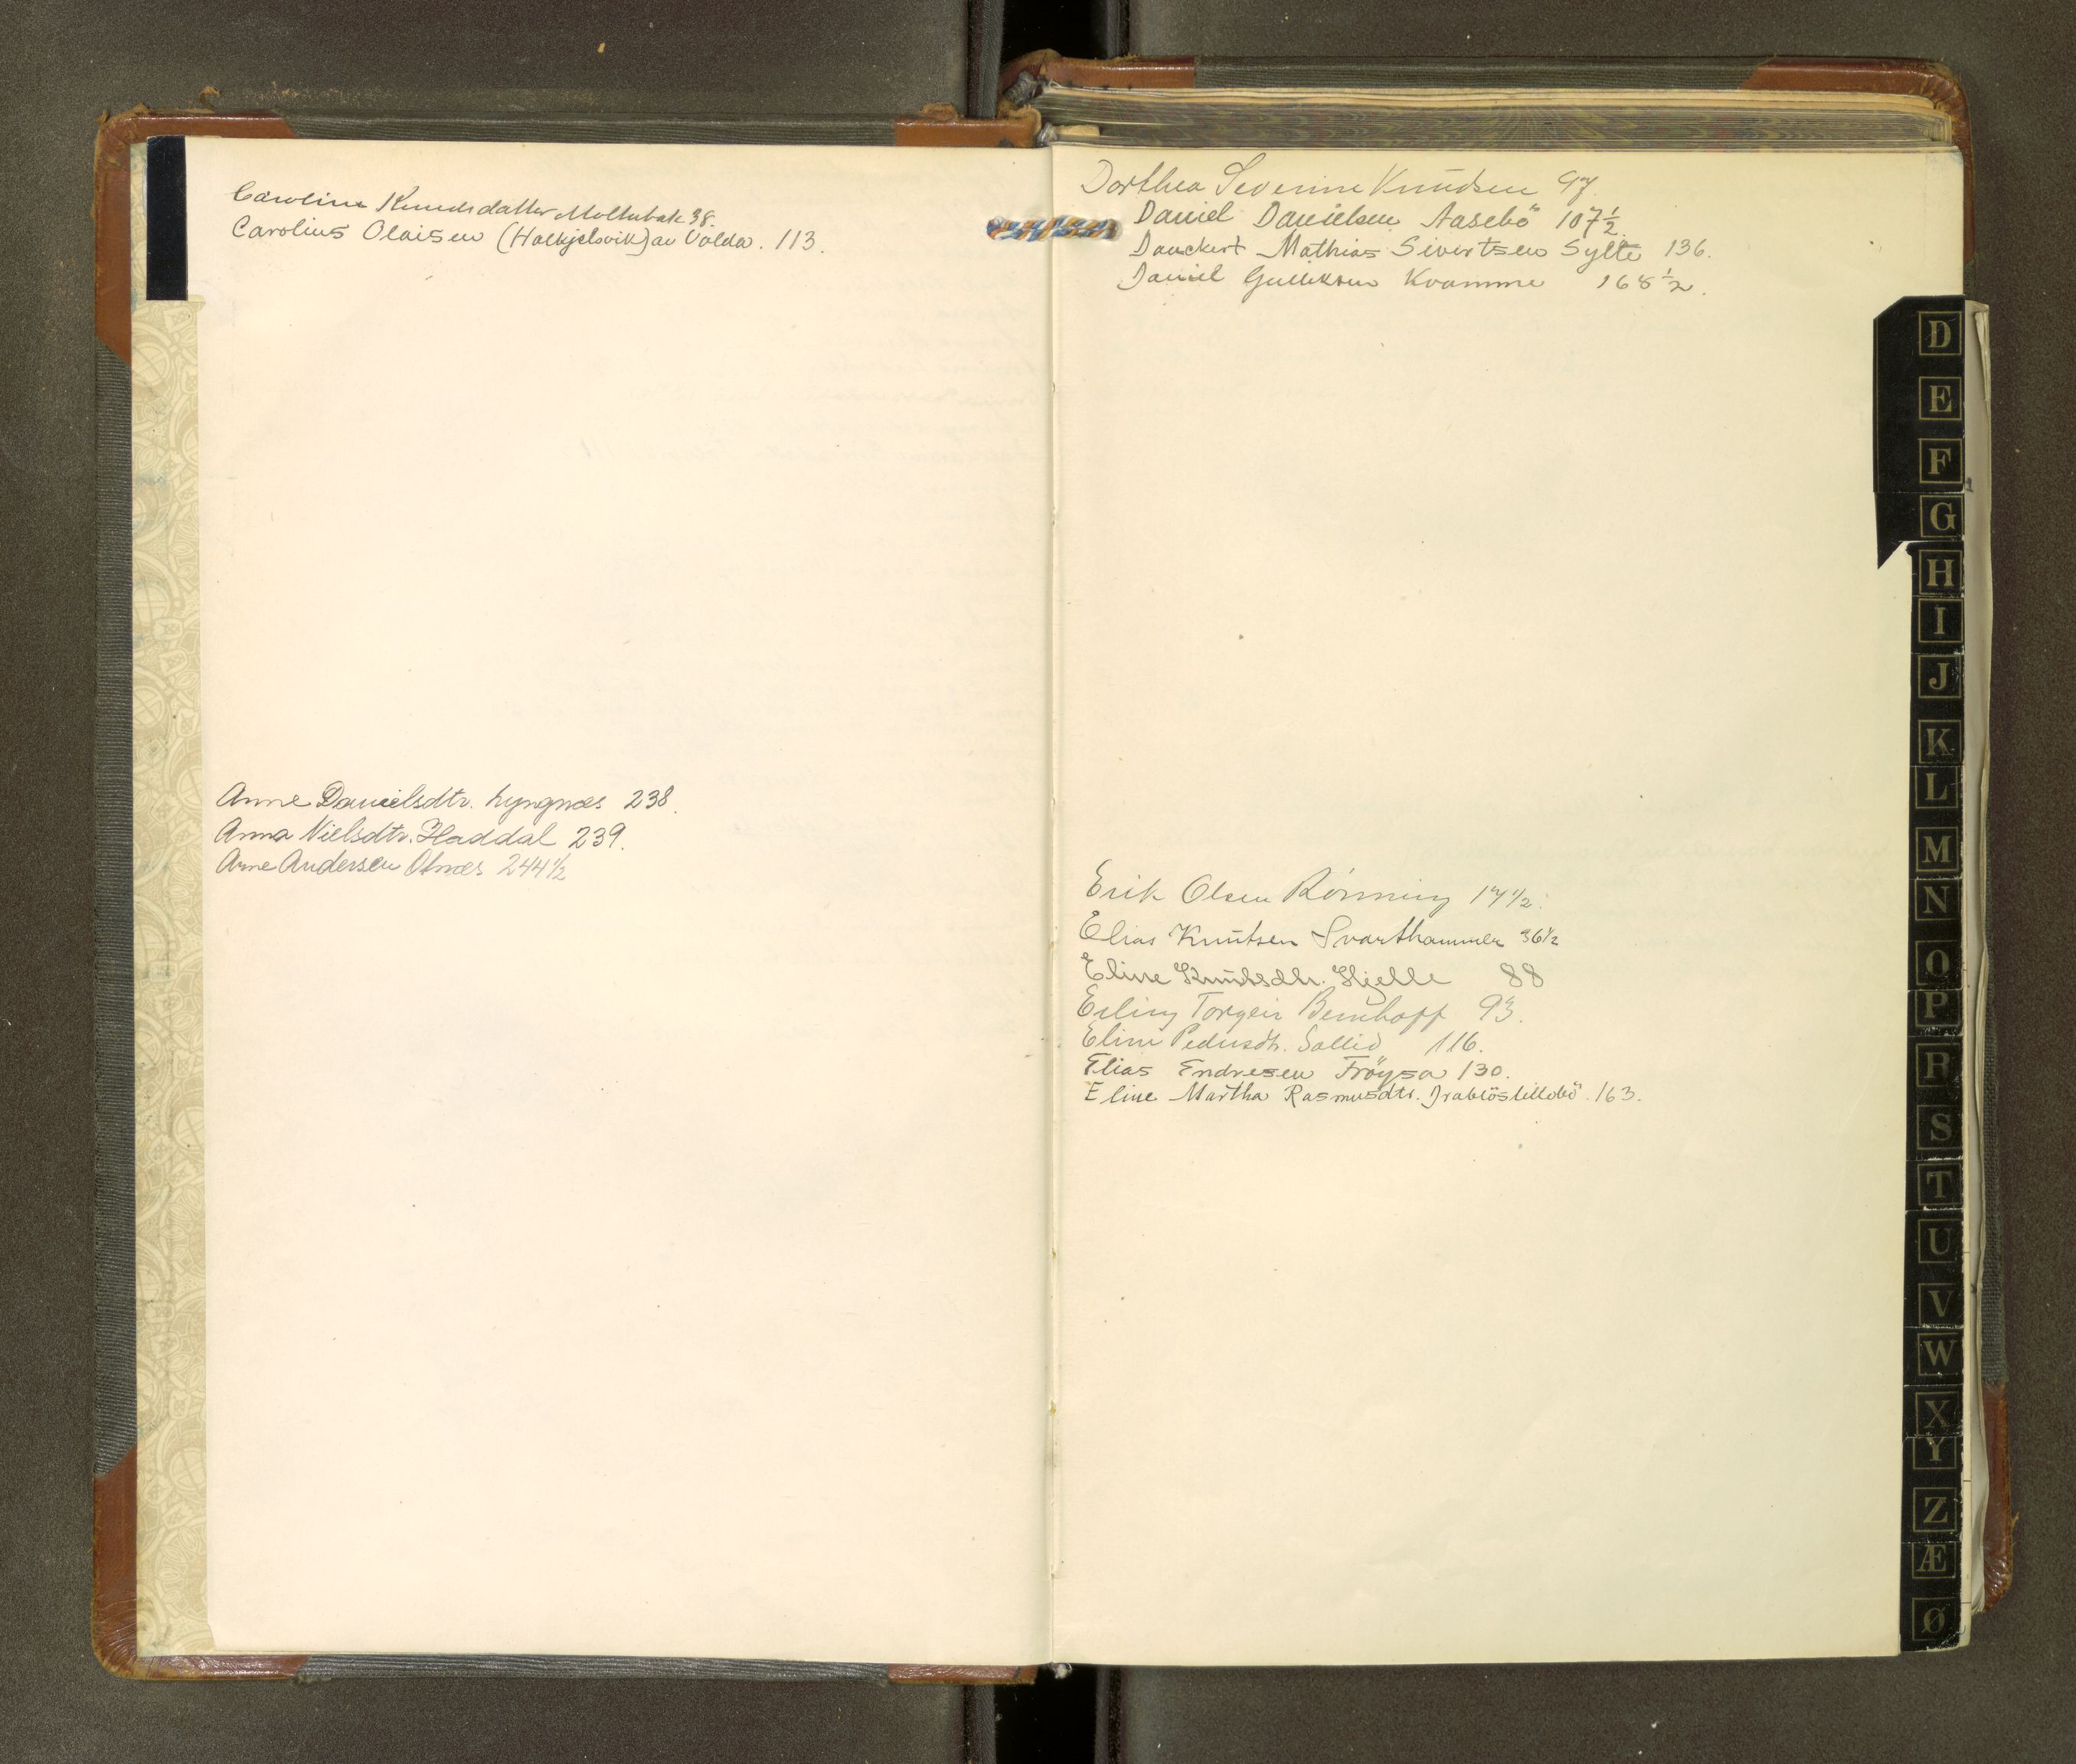 Caroline Knudsdatter Moltubak 38.
Carolius Olaisen (Halkjelsvik) av Volda. 113.
Anne Danielsdtr. Lyngnæs 238.
Anna Nielsdtr. Haddal 239.
Arne Andersen Ofnæs 244½
Dorthea Severine Knudsen 97.
Daniel Danielsen Aasebö 107½.
Danckert Mathias Sivertsen Sylte 136.
Daniel Gulliksen Kvamme 168½.
Erik Olsen Rönning 17½.
Elias Knutsen Svarthammer 36½
Eline Knutsdtr. Hjelle 88
Erling Torgeir Bernhoff 93.
Eline Pedersdtr. 116.
Elias Endresen Fröysa 130.
Eline Martha Rasmusdtr. 163.
D
E
F
G
H
I
J
K
L
M
N
O
P
R
S
T
U
V
W
X
Y
Z
Æ
Ø